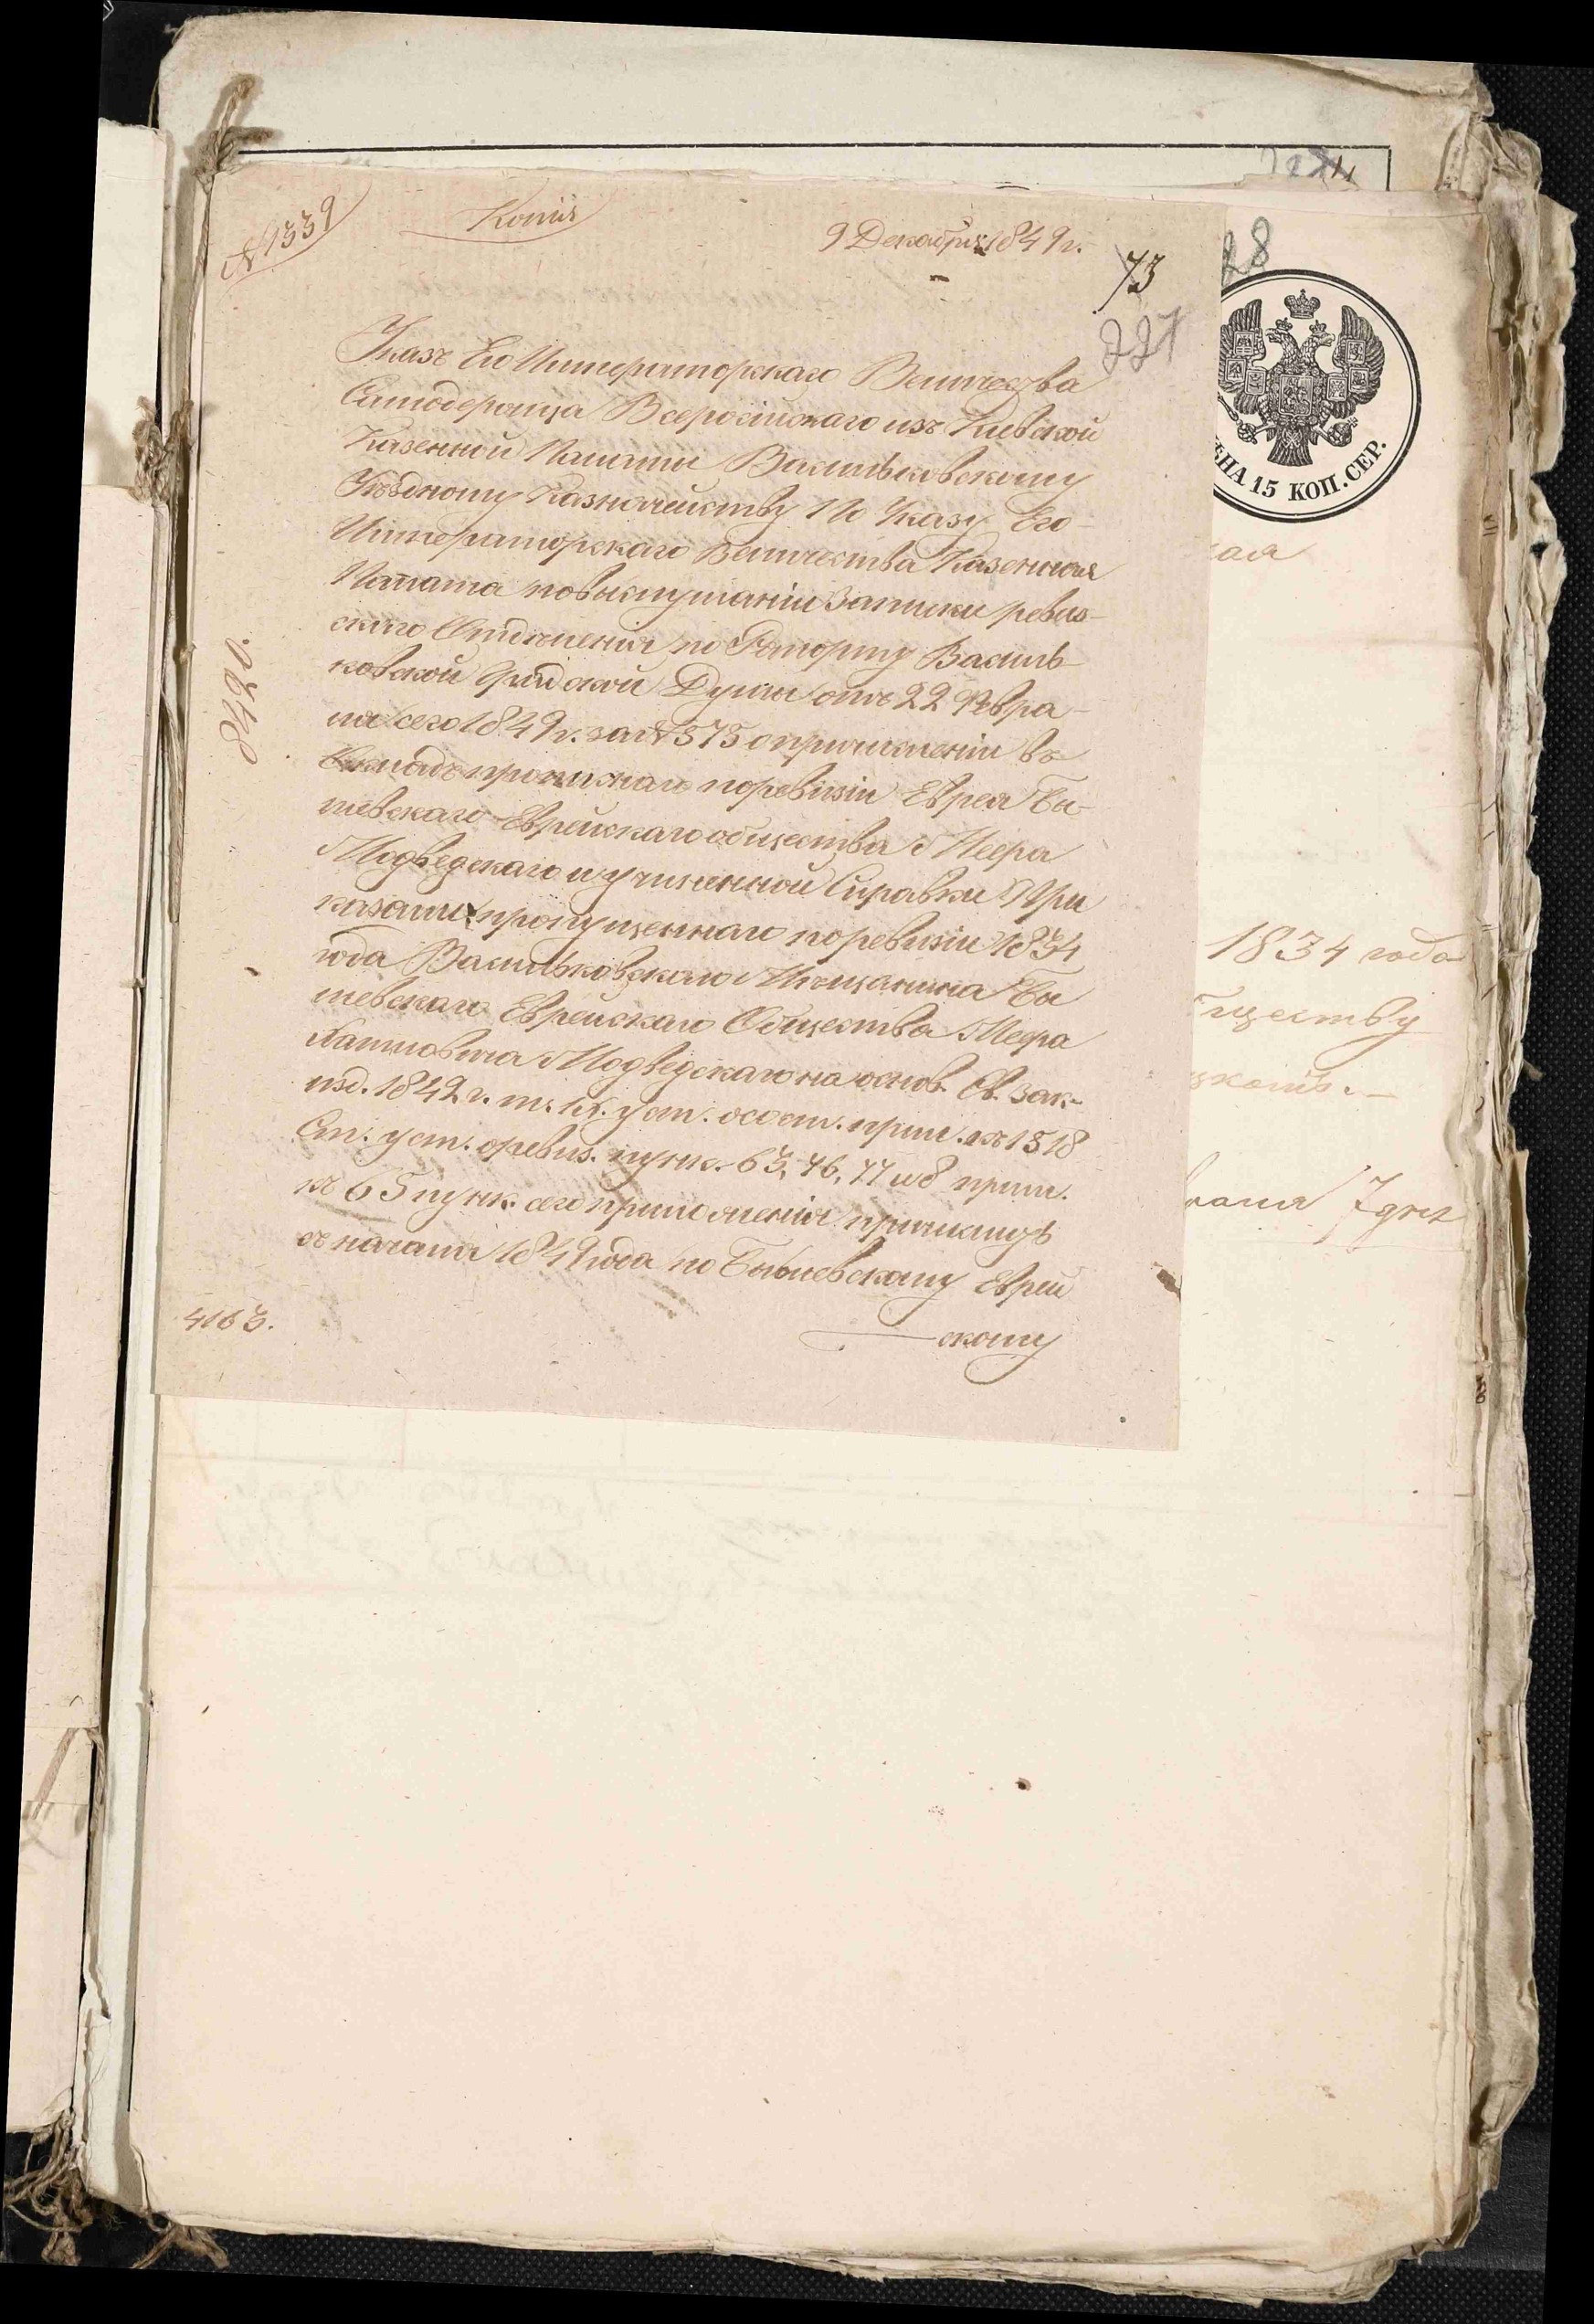 № 1339
Копія
9 Декабря 1849 г.
73
221
28
ЦѢНА 15 КОП. СЕР.
Указъ Его Императорскаго Величества
Самодержца Всеросiйскаго изъ Кіевской
Казенной Палаты Васильковскому
Уѣздному Казначейству По Указу Его
Императорскаго Величества Казенная
Палата повыслушаніи Записки ревиз-
скаго Отдѣленія по Рапорту Василь-
ковской Градской Думы отъ 22 Февра-
ля сего 1849 г. за № 575 о причисленіи въ
окладъ прописнаго поревизіи Еврея Бы-
шевскаго Еврейскаго общества Меера
Модведскаго и учиненной Справки При
казали: пропущеннаго поревизіи 1834
года Васильковскаго Мѣщанина Бы
шевскаго Еврейскаго Общества Меера
Модведскаго на основ. Св. Зак.
изд. 1842 г. т. IX. уст. о сост. прил. къ 1518
Ст. уст. о ревиз. пунк. 63, 76, 77 и 8 прим.
къ 65 пунк. сего приложенія причислить
съ начала 1849 года по Бышевскому Еврей
скому
4163.
8420.
1834 года